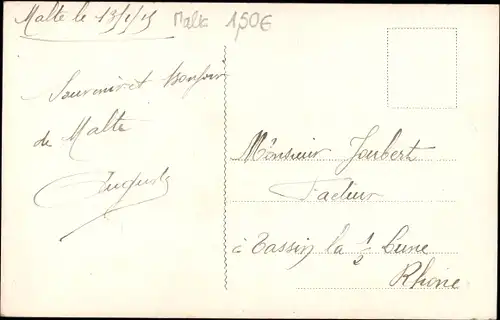 Malte le 13/1/15
Malte 1,50€
Souvenir et Bonjour
de Malte
Auguste
Monsieur Joubert
Facteur
à Tassin la 1/2 Lune
Rhône